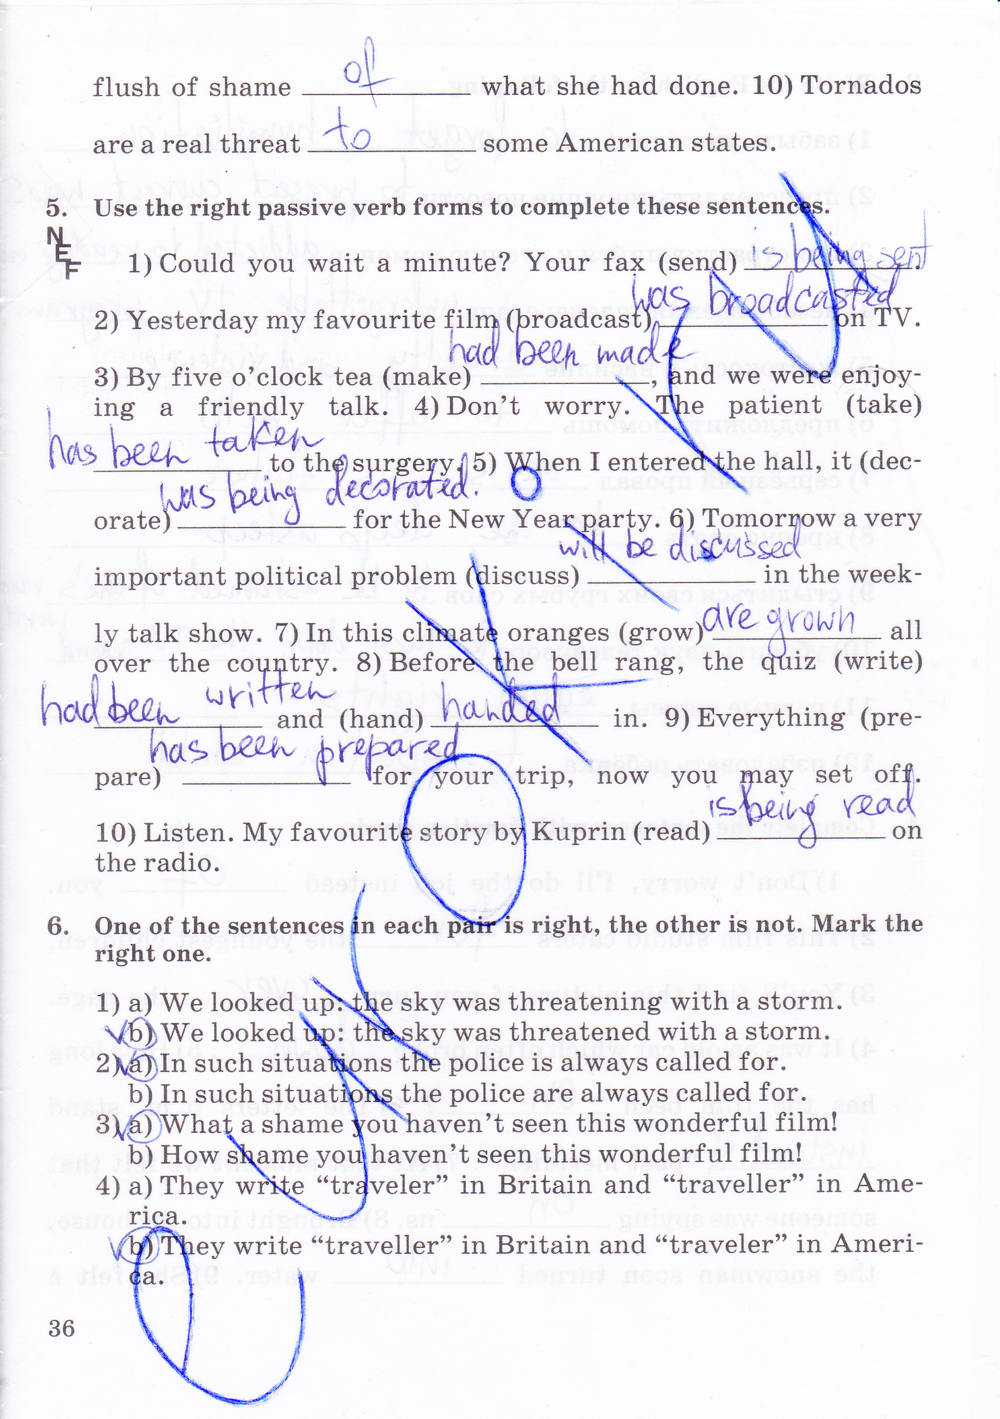 flush of shame of what she had done. 10) Tornados
are a real threat to some American states.
5. Use the right passive verb forms to complete these sentences.
NEF
1) Could you wait a minute? Your fax (send) is being sent.
was broadcasted
2) Yesterday my favourite film (broadcast) on TV.
had been made
3) By five o'clock tea (make) , and we were enjoy-
ing a friendly talk. 4) Don't worry. The patient (take)
has been taken
to the surgery. 5) When I entered the hall, it (dec-
was being decorated.
orate) for the New Year party. 6) Tomorrow a very
will be discussed
important political problem (discuss) in the week-
ly talk show. 7) In this climate oranges (grow) are grown all
over the country. 8) Before the bell rang, the quiz (write)
had been written and (hand) handed in. 9) Everything (pre-
has been prepared
pare) for your trip, now you may set off.
is being read
10) Listen. My favourite story by Kuprin (read) on
the radio.
6. One of the sentences in each pair is right, the other is not. Mark the
right one.
1) a) We looked up: the sky was threatening with a storm.
b) We looked up: the sky was threatened with a storm.
2) a) In such situations the police is always called for.
b) In such situations the police are always called for.
3) a) What a shame you haven't seen this wonderful film!
b) How shame you haven't seen this wonderful film!
4) a) They write "traveler" in Britain and "traveller" in Ame-
rica.
b) They write "traveller" in Britain and "traveler" in Ameri-
ca.
36